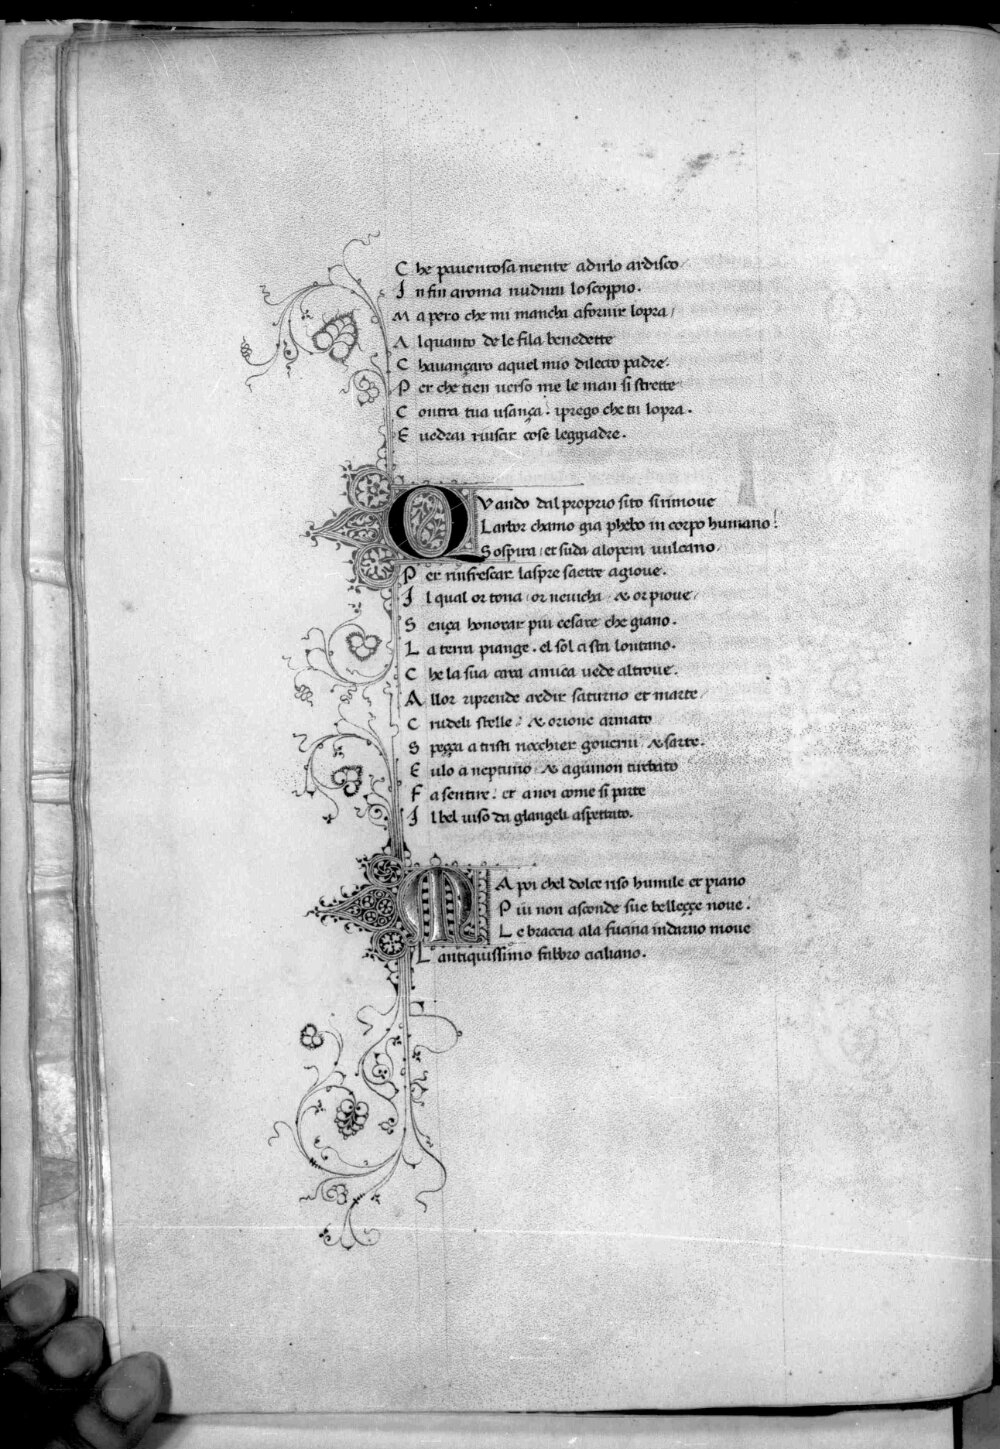 C he pauentosa mente adirlo ardisco
I n fin aroma nudirai lo scoppio.
M a pero che mi mancha afornir lopra/
A lquanto de le fila benedette
C hauançaro aquel mio dilecto padre.
P er che tien uerso me le man si strette
C ontra tua usança. iprego che tu lopra.
E uedrai riuscir cose leggiadre.
QVando dal proprio sito si rimoue
Larbor chamo gia phebo in corpo humano:
Sospira et suda alopera uulcano
P er rinfrescar laspre saette agioue.
I l qual or tona or neuicha & or pioue
S ença honorar piu cesare che giano.
L a terra piange. el sol ci sta lontano.
C he la sua cara amica uede altroue.
A llor riprende ardir saturno et marte
C rudeli stelle: & orione armato
S peçça a tristi nocchier gouerni & sarte.
E ulo a neptuno & agiunon turbato
F a sentire: et a noi come si parte
I l bel uiso da glangeli aspettato.
MA poi chel dolce riso humile et piano
P iu non asconde sue belleççe noue.
L e braccia ala fucina indarno moue
L antiquissimo fabbro ciciliano.